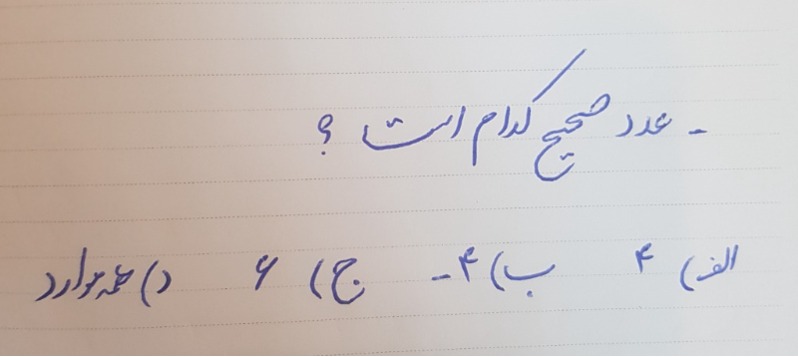 - عدد صحیح کدام است ؟
الف) ۴ ب) ۴- ج) ۶ د) همه موارد